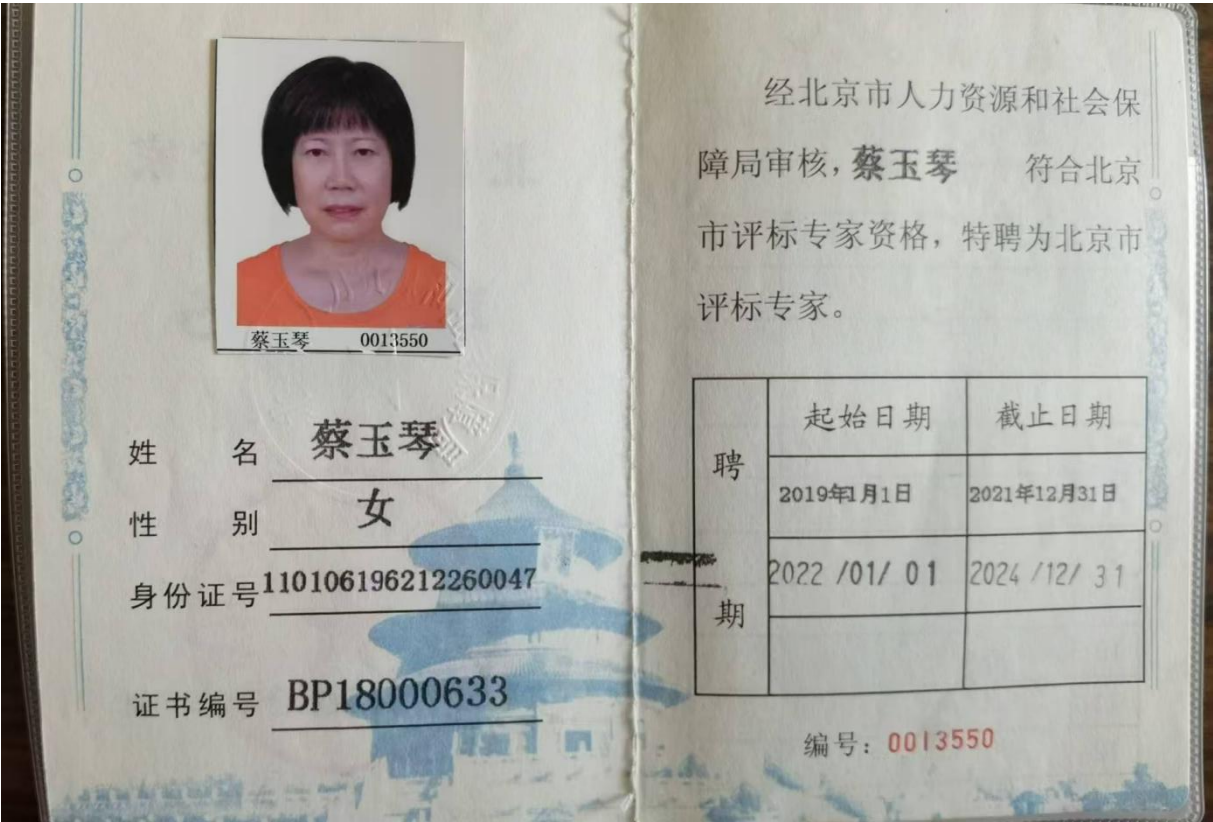 蔡玉琴 0013550
姓 名 蔡玉琴
性 别 女
身份证号 110106196212260047
证书编号 BP18000633
经北京市人力资源和社会保
障局审核，蔡玉琴 符合北京
市评标专家资格，特聘为北京市
评标专家。
聘期
起始日期 截止日期
2019年1月1日 2021年12月31日
2022 /01/ 01 2024 /12/ 31
编号：0013550